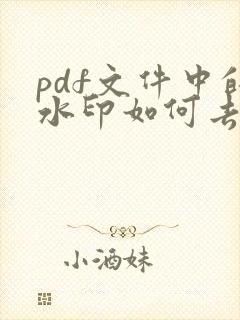 pdf文件中的
水印如何去
小酒妹